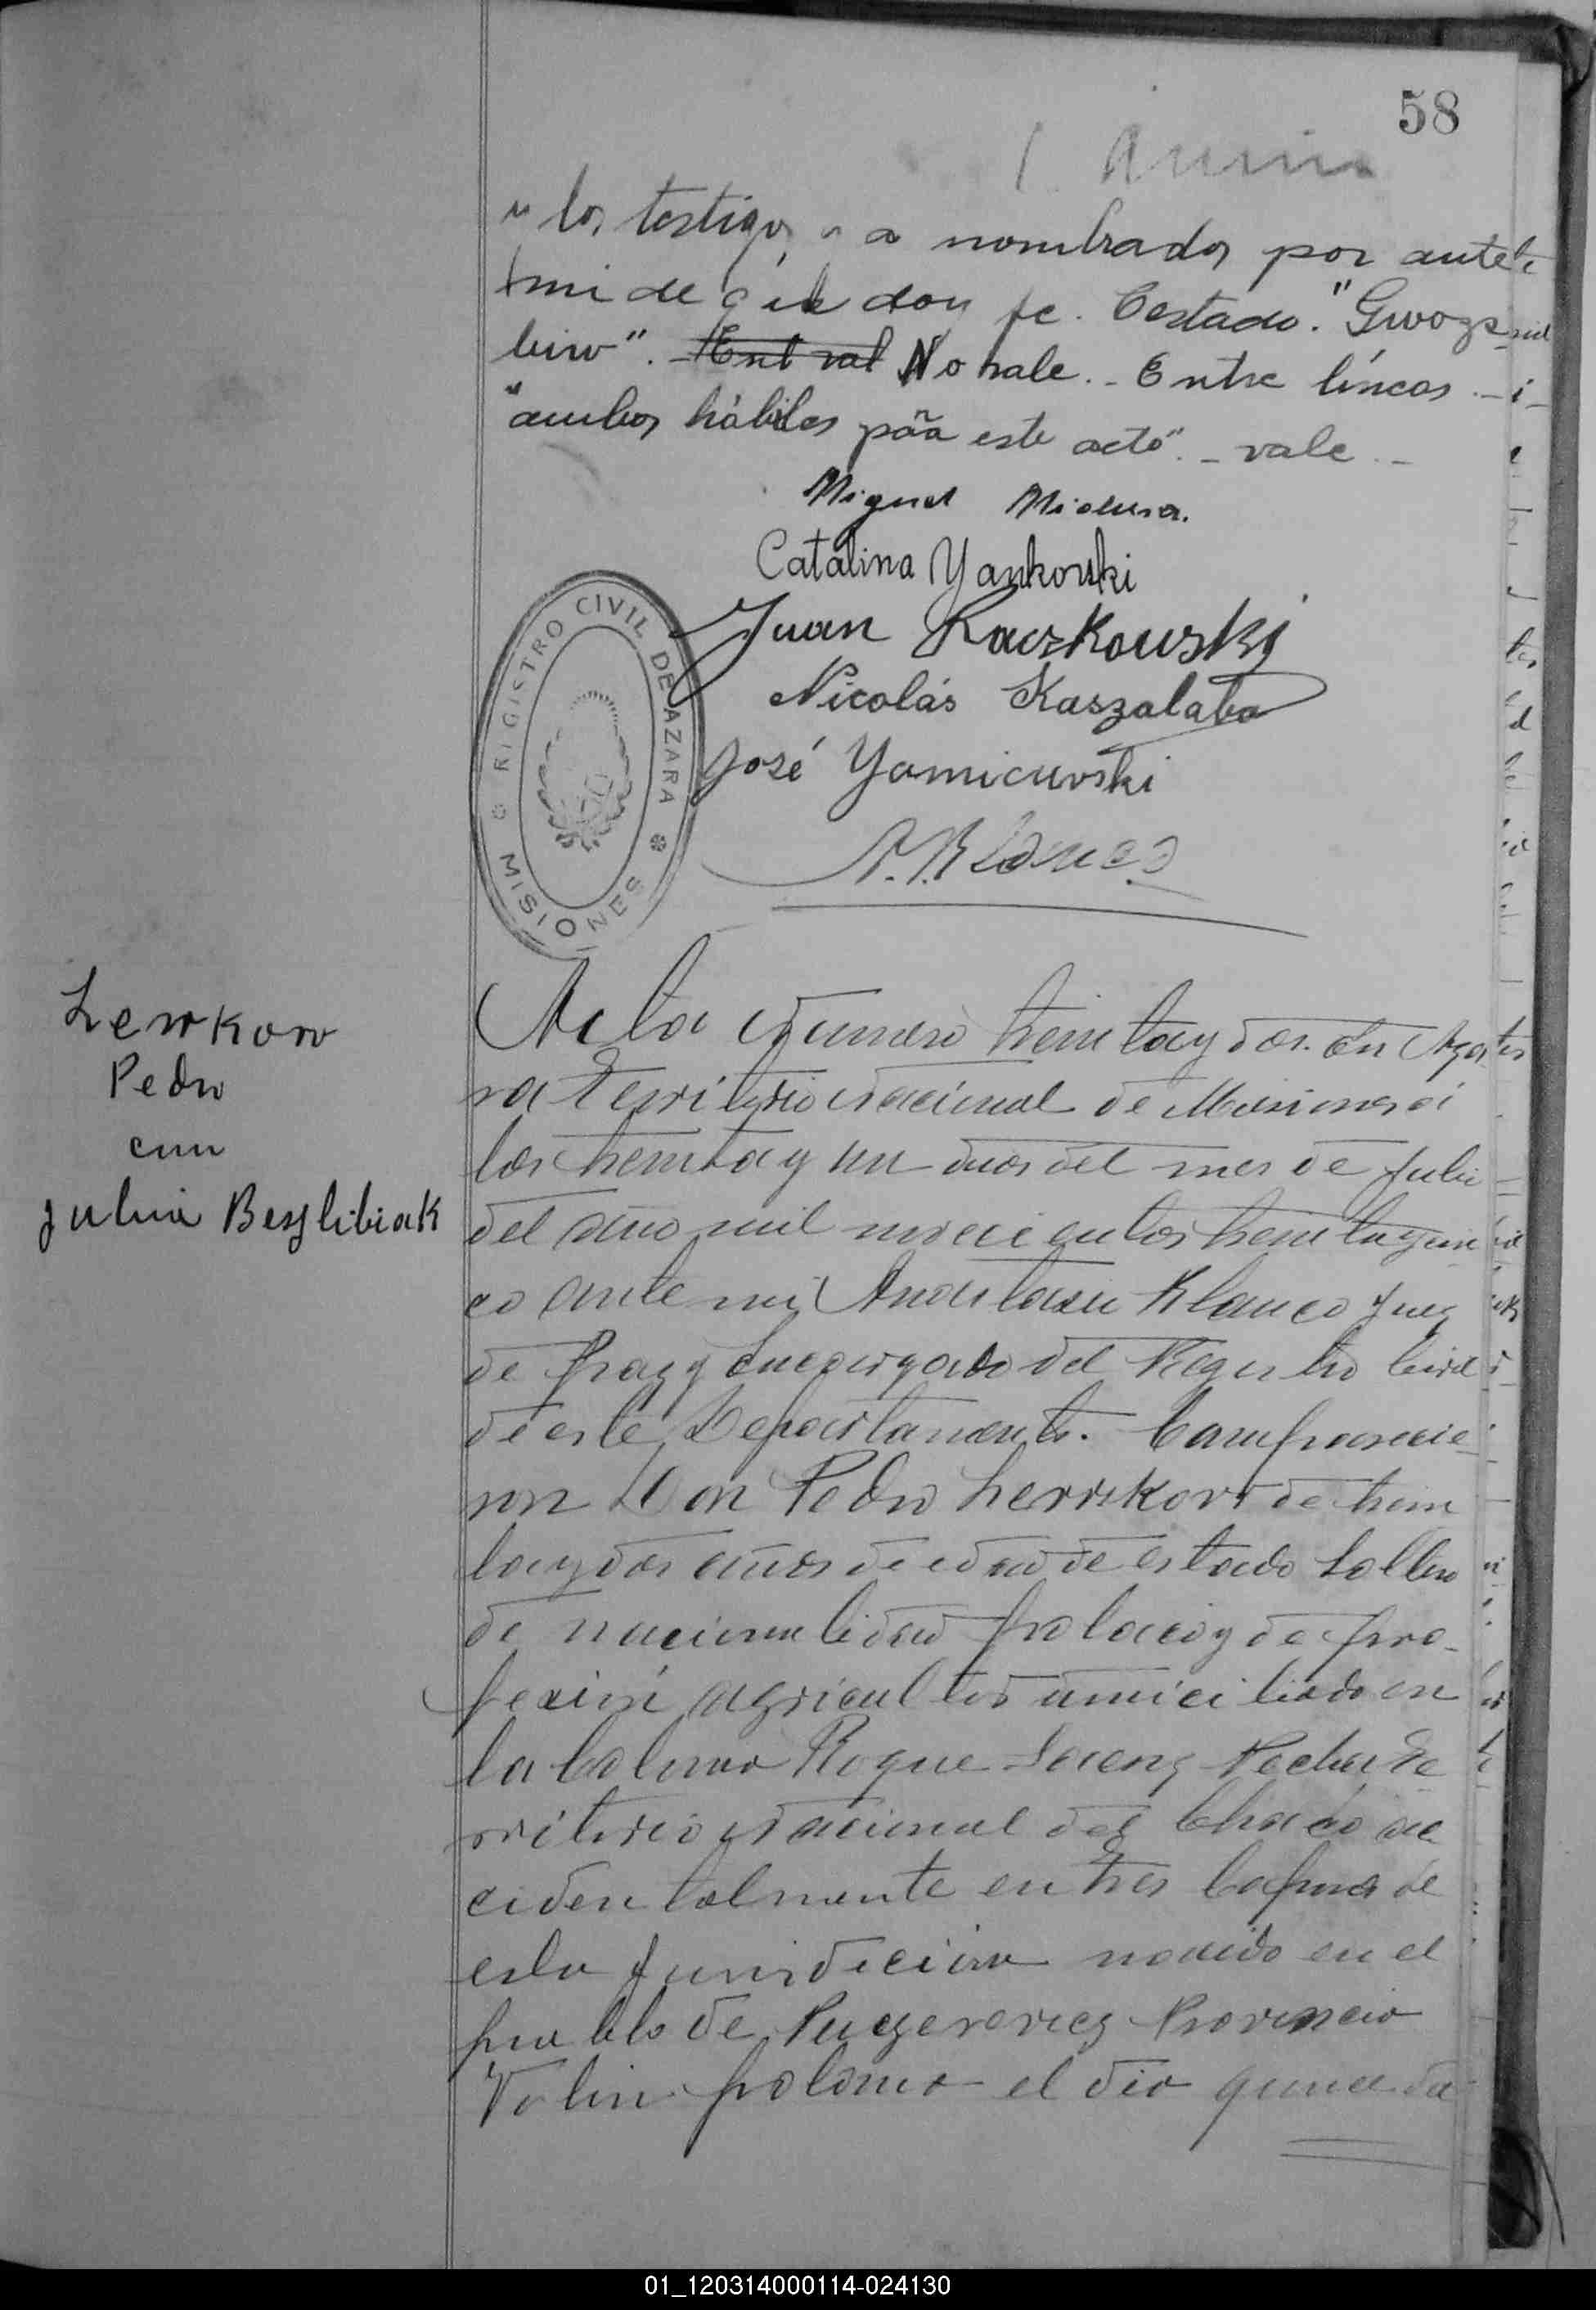 58
los testigos nombrados por ante
mi de que doy fe. Testado. "Gwozs
biro". Ent val No vale. - Entre líneas -
"ambos hábiles pãa este acto". - vale -
Miguel
Catalina Yankowski
Juan Raczkowski
Nicolás Kaszalaba
José Yamiewski
A. Blanco
REGISTRO CIVIL DE AZARA
MISIONES
Lewkow
Pedro
con
Julia Beszlibiak
Acta Número treinta y dos. En Aza
ra Territorio Nacional de Misiones á
los treinta y un dias del mes de Julio
del año mil novecientos treinta y cin
co ante mi Anastasio Blanco Juez
de Paz y Encargado del Registro Civil
de este Departamento. Comparecie
ron Don Pedro Lewkow de trein
ta y dos años de edad de estado soltero
de nacionalidad polaco y de pro-
fesión agricultor domiciliado en
la Colonia Roque Saenz Peña Te
rritorio Nacional del Chaco ac
cidentalmente en Tres Capones de
esta Jurisdicción nacido en el
pueblo de Provincia
Volin polonia el dia quince de
01_120314000114-024130